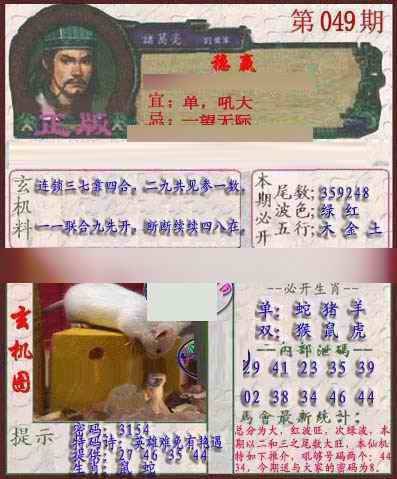 第049期
諸葛亮
稳赢
宜：单，吼大
忌：一望无际
正版
玄机料
连锁三七靠四合，二九共见参一数，
一一联合九先开，断断续续四八在，
本期必开
尾数：359248
波色：绿 红
五行：木 金 土
玄机图
提示
密码：3154
特码诗：英雄难免有艳遇
提供：27 46 35 44
生肖：鼠 蛇
--必开生肖--
单：蛇 猪 羊
双：猴 鼠 虎
--内部泄码--
29 41 23 35 39
02 38 34 46 44
马會最新统计：
总分为大，红波旺，次绿波，本
期以二和三之尾数大旺，本仙机
特如下推介，吼够号码两个：44
34，今期送与大家的密码为8。